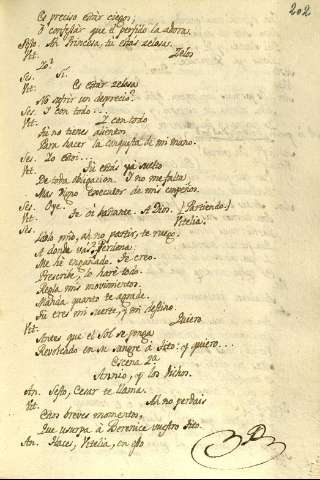 202
Es preciso estar ciegos,
O confesar que el perfido la adora.
Sesto. Ah Princesa, tu estas zelosa.
Vit. Zelos
Yo?
Ses. Si.
Vit. Es estar zelosa
No sufrir un deprecio?
Ses. Y con todo...
Vit. Y con todo
Tu no tienes aliento
Para hacer la conquista de mi mano.
Ses. Yo estoi...
Vit. Tu estás ya suelto
De toda obligacion. Y no me falta
Mas digno executor de mis empeños.
Ses. Oye.
Vit. Te oi bastante. A Dios. (Partiendo.)
Ses. Vitelia.
Idolo mio, ah no partir, te ruego.
A donde vas? Perdona:
Me hé engañado. Te creo.
Prescribe, lo haré todo.
Regla mis movimientos.
Manda quanto te agrade.
Tu eres mi suerte, y mi destino.
Vit. Quiero
Antes que el Sol se ponga
Revolcado en su sangre á Tito: y quiero...
Escena 2ª
Annio, y los dichos.
An. Sesto, Cesar te llama.
Vit. Ah no perdais
Estos breves momentos,
Que usurpa á Berenice vuestro Tito.
An. Haces, Vitelia, en